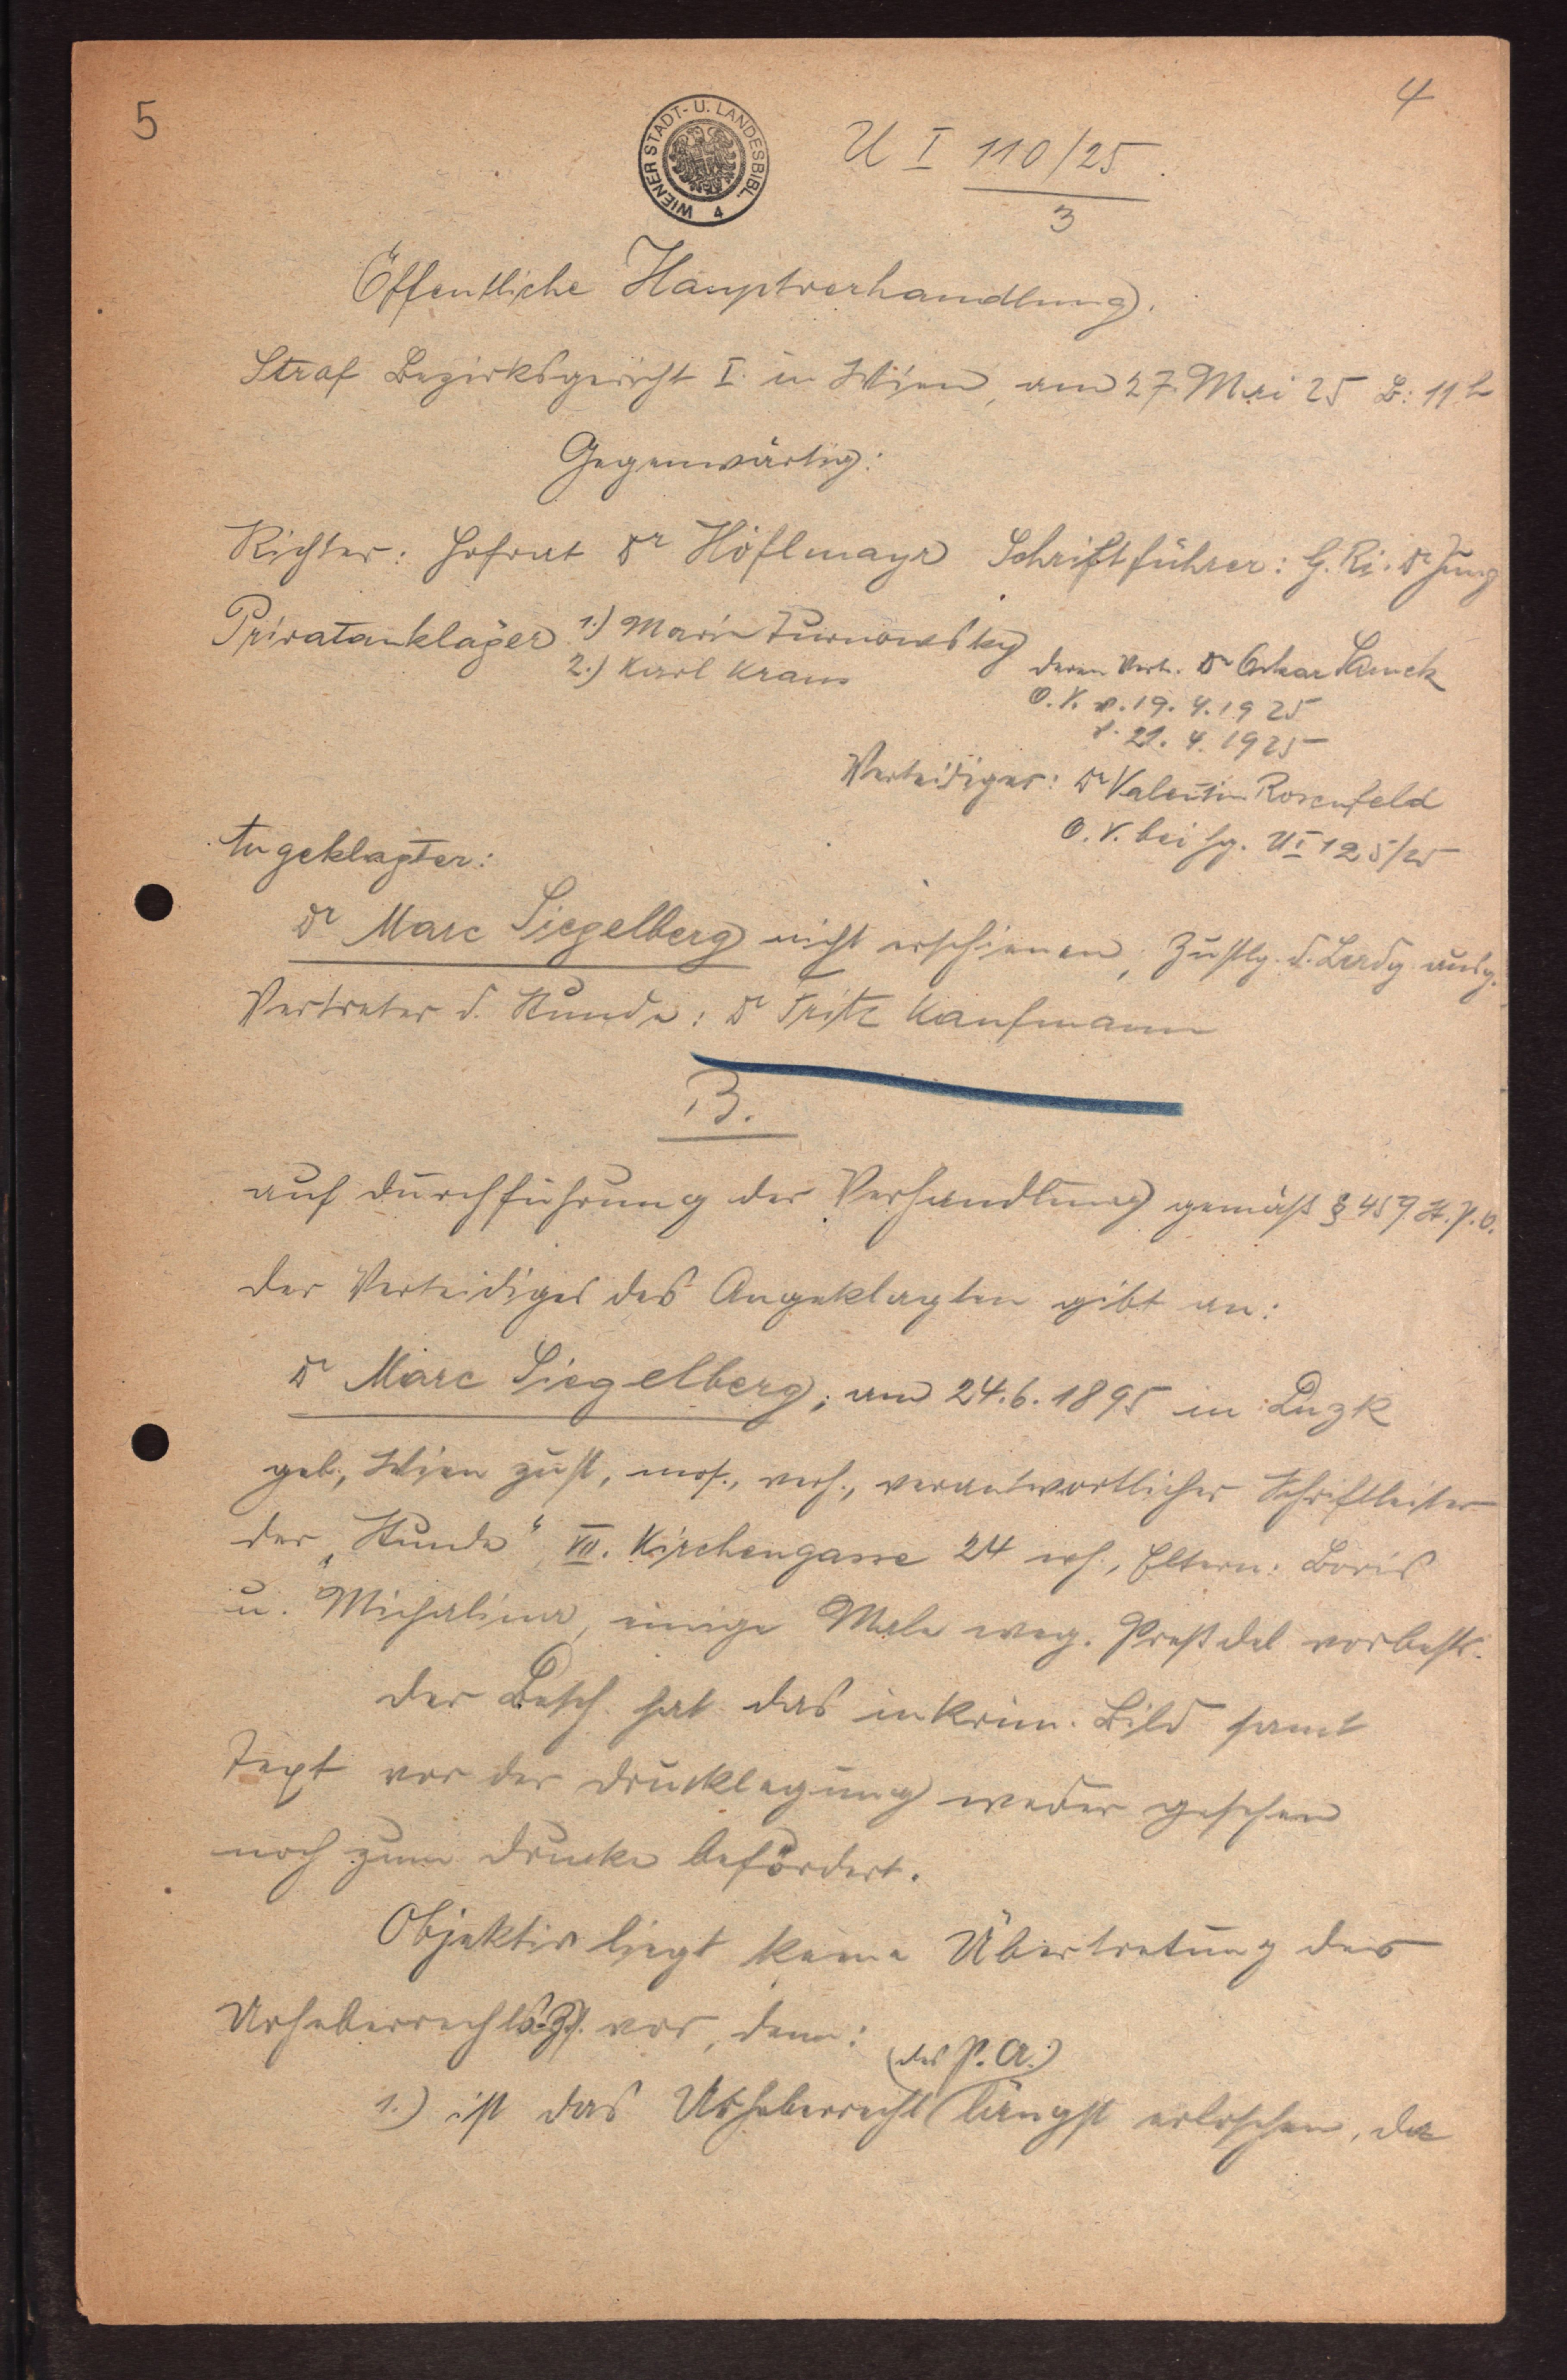 5
4
WIENER STADT- U. LANDESBIBL. 4
U I 110/25
3
Öffentliche Hauptverhandlung.
Straf Bezirksgericht I in Wien, am 27. Mai 25 B: 11 h
Gegenwärtig:
Richter: Hofrat Dr Höflmayr Schriftführer: Dr Jung
Privatankläger 1.) Marie Turnowsky
2.) Karl Kraus
deren Vertr. Dr Oskar Samek
O. V. v. 19. 4. 1925
v. 21. 4. 1925
Verteidiger: Dr Valentin Rosenfeld
O. V. bei hg. U I 125/25
Angeklagter:
Dr Marc Siegelberg nicht erschienen, Zustlg. d. Ladg. ausg.
Vertreter d. Stunde: Dr Fritz Kaufmann
B.
auf Durchführung der Verhandlung gemäß § 457 St. P. O.
Der Verteidiger des Angeklagten gibt an:
Dr Marc Siegelberg, am 24.6.1895 in Luzk
geb., Wien zust., mos., verh., verantwortlicher Schriftleiter
der „Stunde“ VII. Kirchengasse 24 wh., Eltern: Boris
u. Michalina, einige Male weg. Preßdel vorbestr.
Der Besch. hat das inkrim. Bild samt
Text vor der Drucklegung weder gesehen
noch zum Drucke befördert.
Objektiv liegt keine Übertretung des
Urheberrechtsgs. vor, denn:
(des P. A.)
1.) ist das Urheberrecht längst erloschen, da